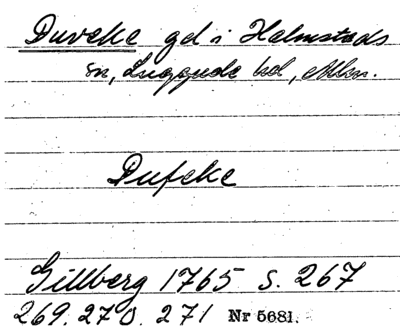 Duveke gd i Halmstads
sn, Luggude hd, Mlm.
Dufeke
Gillberg 1765 s. 267
269. 270. 271 Nr 5681.